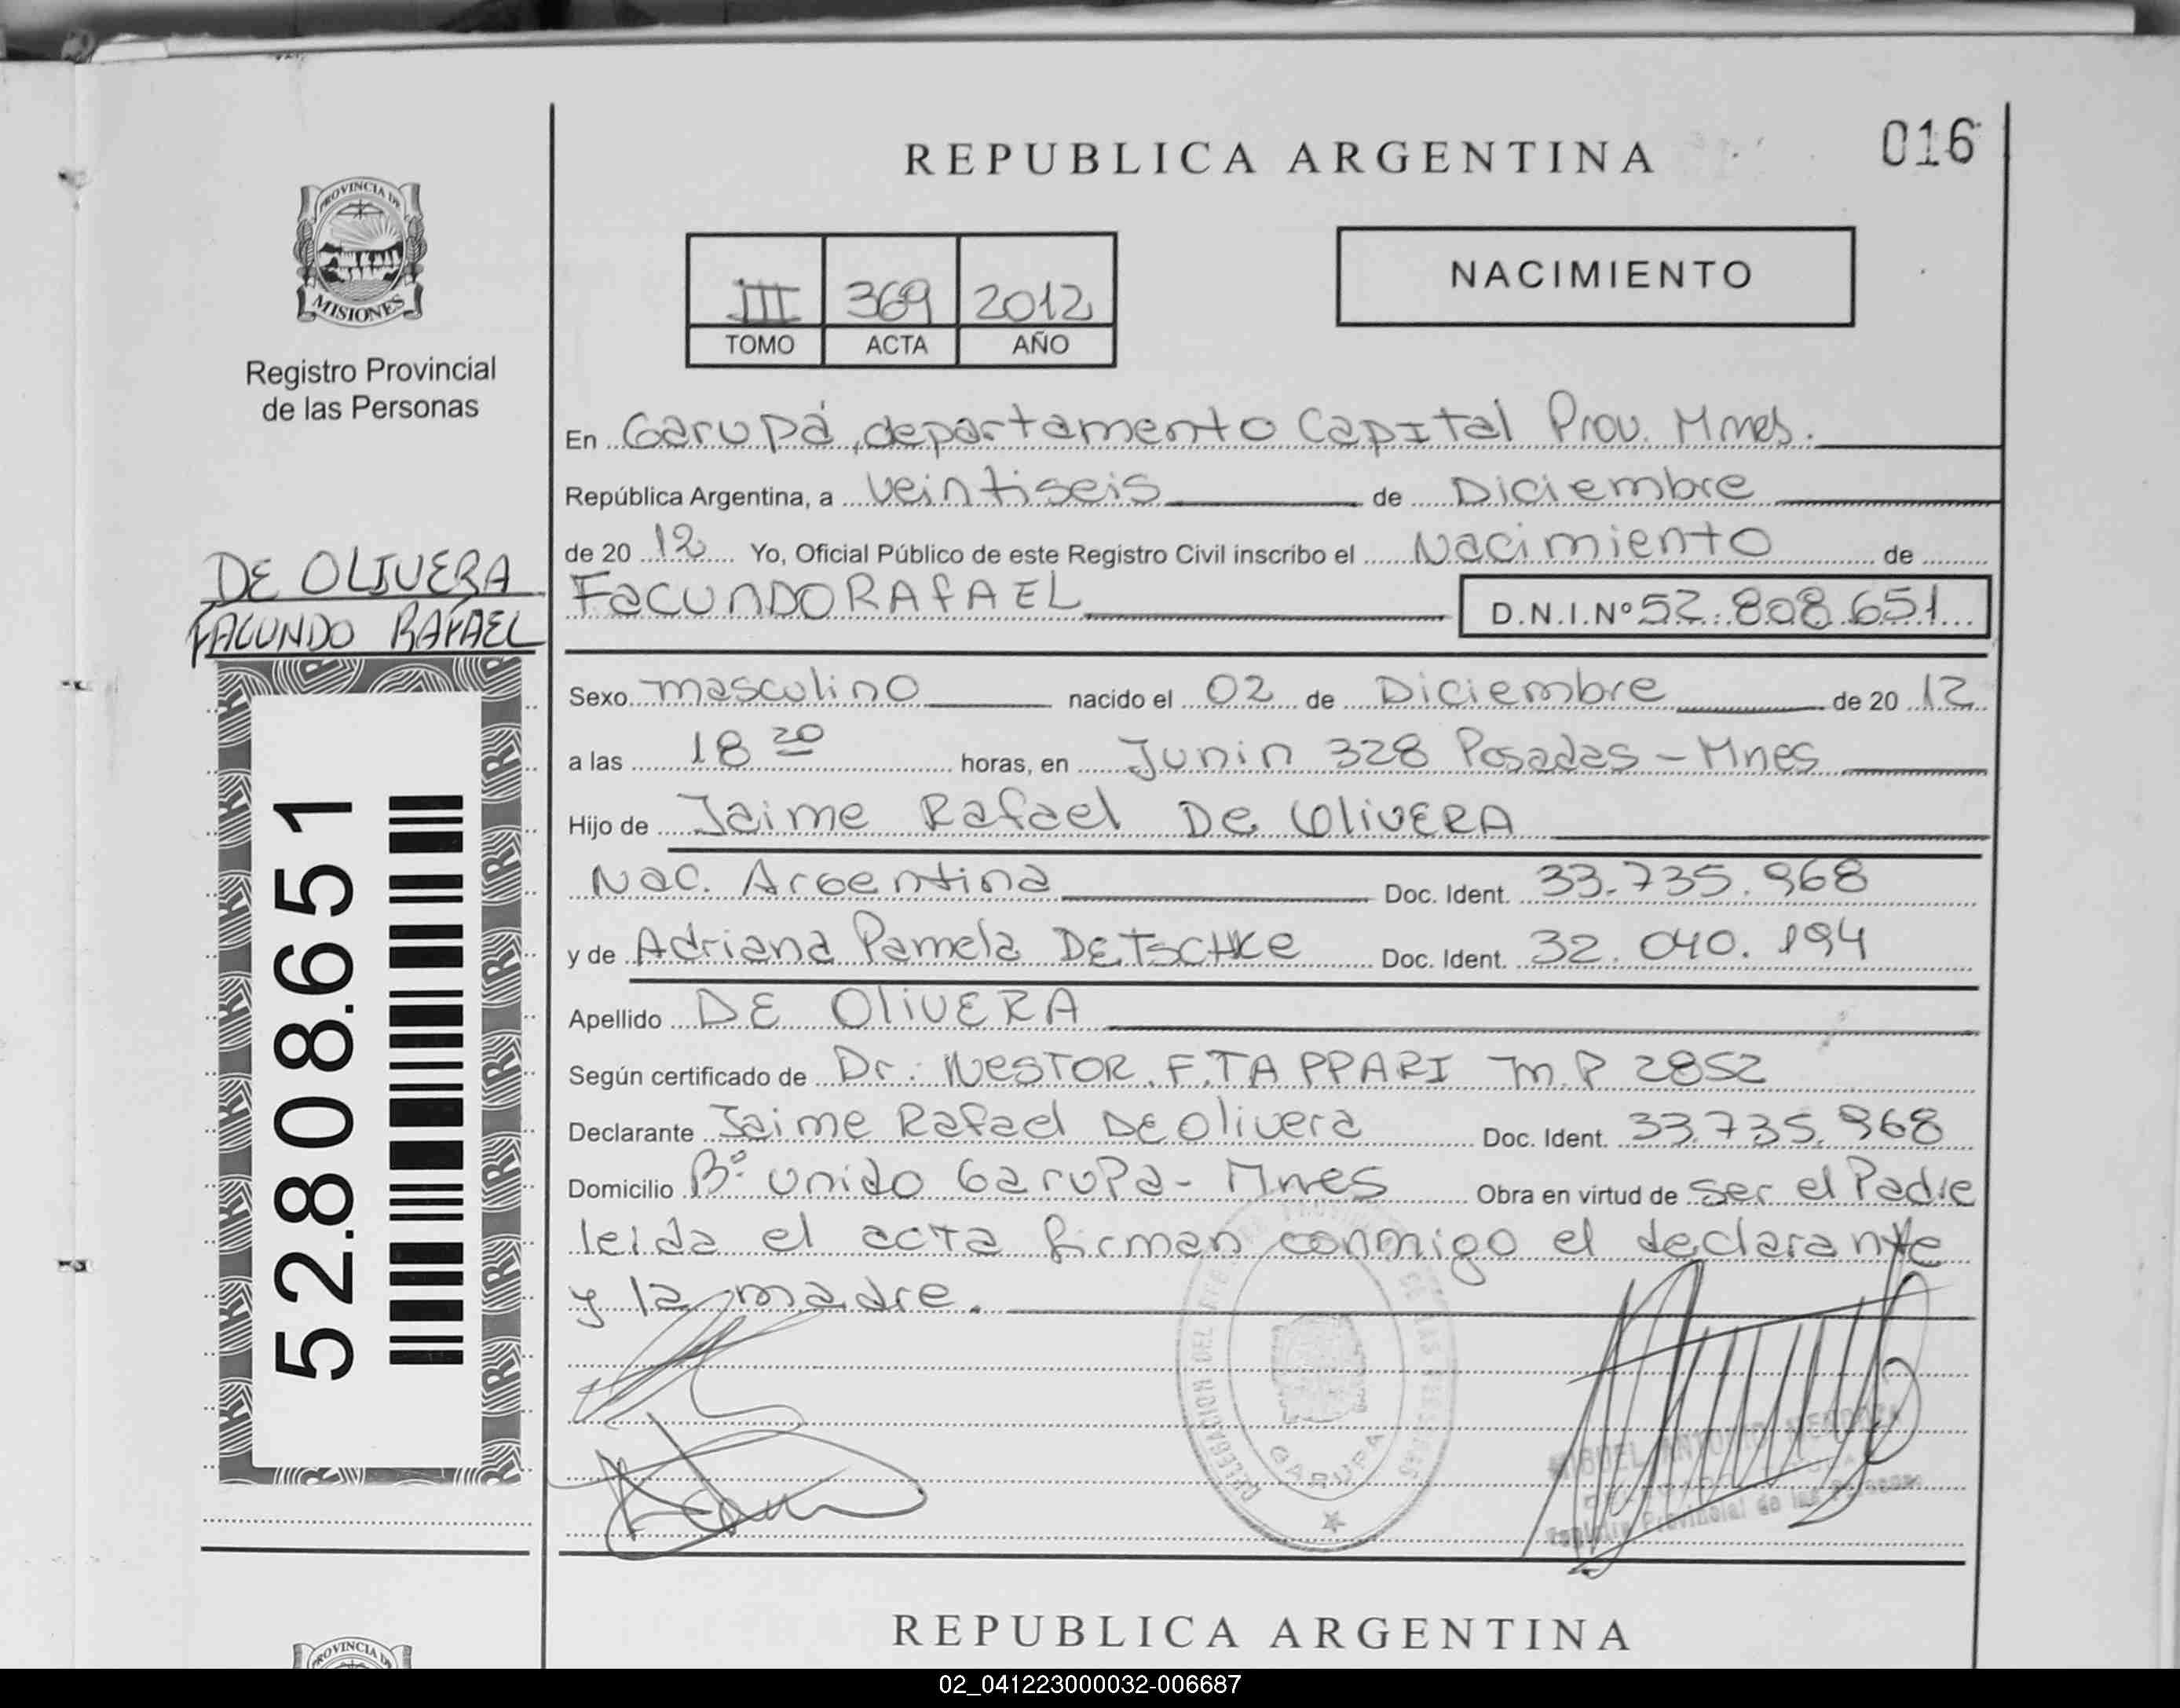 PROVINCIA DE
MISIONES
Registro Provincial
de las Personas
DE OLIVERA
FACUNDO RAFAEL
52.808.651
REPUBLICA ARGENTINA
016
III 369 2012
TOMO ACTA AÑO
NACIMIENTO
En Garupá, departamento Capital Prov. Mnes.
República Argentina, a veintiseis de Diciembre
de 20 12 Yo, Oficial Público de este Registro Civil inscribo el Nacimiento de
FACUNDO RAFAEL D.N.I.Nº 52.808.651
Sexo masculino nacido el 02 de Diciembre de 20 12
a las 18 20 horas, en Junin 328 Posadas - Mnes
Hijo de Jaime Rafael De OliVERA
Nac. Argentina Doc. Ident. 33.735.968
y de Adriana Pamela DETSCHKe Doc. Ident. 32.040.194
Apellido DE OliVERA
Según certificado de Dr. NESTOR. F. TAPPARI M.P 2852
Declarante Jaime Rafael DE Olivera Doc. Ident. 33.735.968
Domicilio Bº unido Garupa - Mnes Obra en virtud de ser el Padre
leida el acta firman conmigo el declarante
y la madre.
DELEGACION DEL
GARUPA
MIGUEL ANTONIO MENDOZA
Registro Provincial de las Personas
REPUBLICA ARGENTINA
PROVINCIA DE
02_041223000032-006687